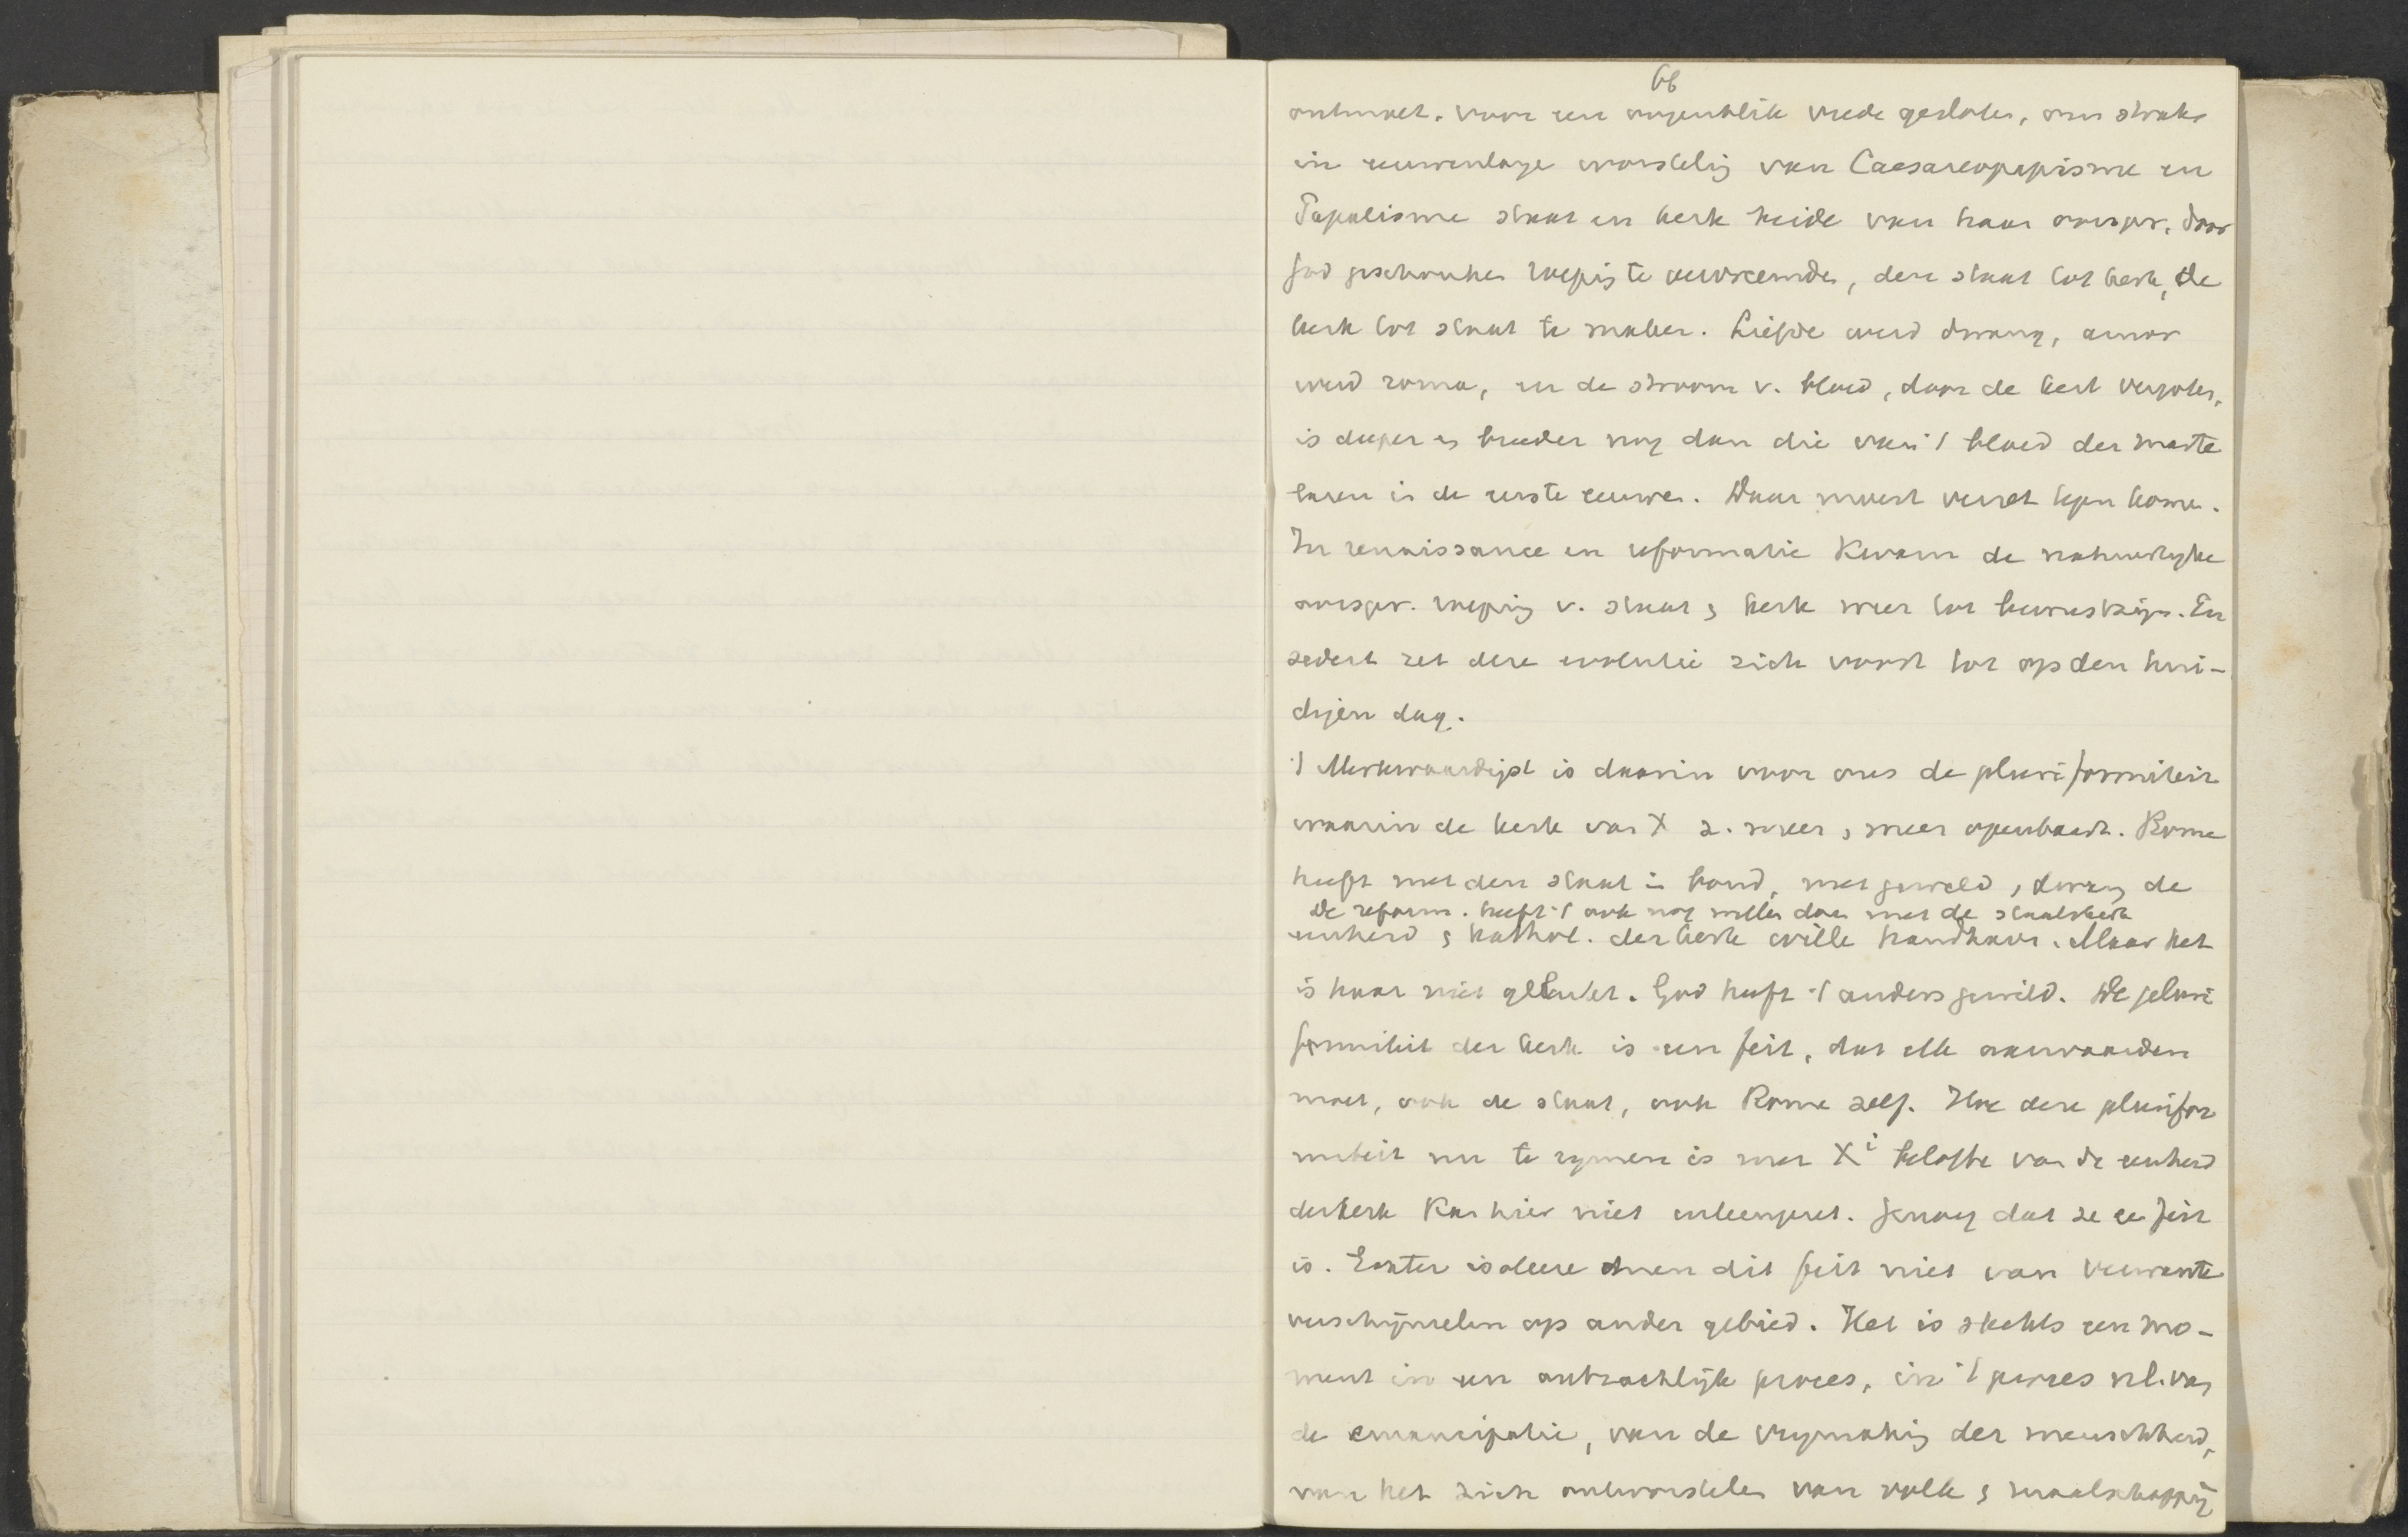 66
ontmoet, voor een oogenblik vrede gesloten, om straks
in eeuwenlange worsteling van Caesareopapisme en
Papalisme staat en kerk beide van haar oorspr. door
God geschonken roeping te vervreemden, den staat tot kerk, de
kerk tot staat te maken. Liefde werd dwang, amor
werd roma, en de stroom v. bloed, door de kerk vergoten,
is dieper en breeder nog dan die van 't bloed der marte
laren in de eerste eeuwen. Daar moest verzet tegen komen.
In renaissance en reformatie kwam de natuurlyke
oorspr. roeping v. staat & kerk weer tot bewustzijn. En
sedert zet deze evolutie zich voort tot op den hui-
digen dag.
't Merkwaardigst is daarin voor ons de pluriformiteit
waarin de kerk van X z. meer & meer openbaart. Rome
heeft met den staat in bond, met geweld & dwang de
De reform. heeft 't ook nog willen doen met de staatskerk
eenheid & kathol. der kerk wille handhaven. Maar het
is haar niet gelukt. God heeft 't anders gewild. De pluri
formiteit der kerk is een feit, dat elk aanvaarden
moet, ook de staat, ook Rome zelf. Hoe deze plurifor
miteit nu te rymen is met Xi belofte van de eenheid
der kerk kan hier niet uiteengezet. Genoeg dat ze ee feit
is. Echter isoleere men dit feit niet van verwante
verschijnselen op ander gebied. Het is slechts een mo-
ment in een ontzachlijk proces, in 't proces nl. van
de emancipatie, van de vrymaking der menschheid,
van het zich ontworstelen van volk & maatschappij